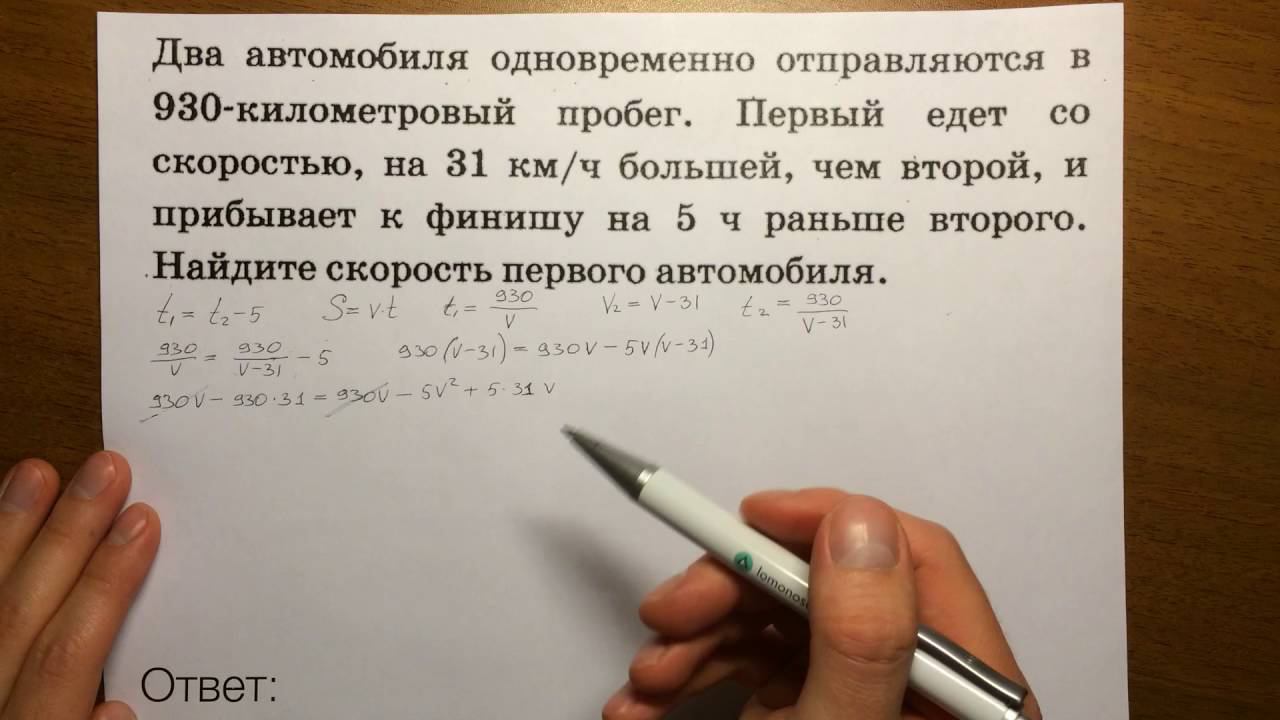 Два автомобиля одновременно отправляются в
930-километровый пробег. Первый едет со
скоростью, на 31 км/ч большей, чем второй, и
прибывает к финишу на 5 ч раньше второго.
Найдите скорость первого автомобиля.
t₁ = t₂ − 5 S = v·t t₁ = 930/v v₂ = v − 31 t₂ = 930/(v−31)
930/v = 930/(v−31) − 5 930(v−31) = 930v − 5v(v−31)
930v − 930·31 = 930v − 5v² + 5·31 v
lomonos
Ответ: